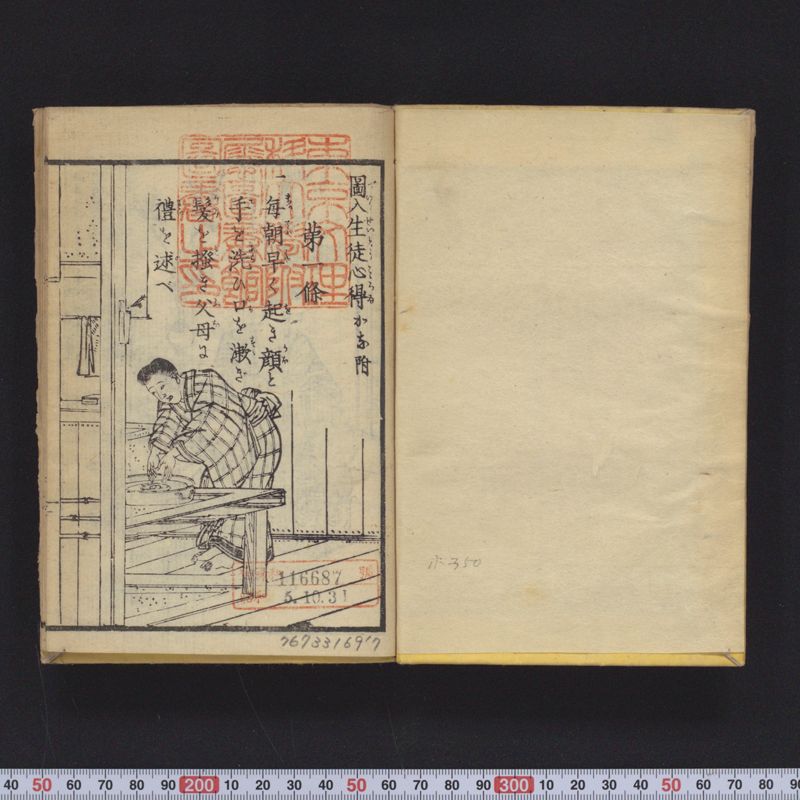 圖入生徒心得かな附
第一條
一 每朝早く起き顏と
手を洗ひ口を漱ぎ
髮を掻き父母に
禮を述べ
116687
5.10.31
767331697
ホ350
40 50 60 70 80 90 200 10 20 30 40 50 60 70 80 90 300 10 20 30 40 50 60 70 80 90